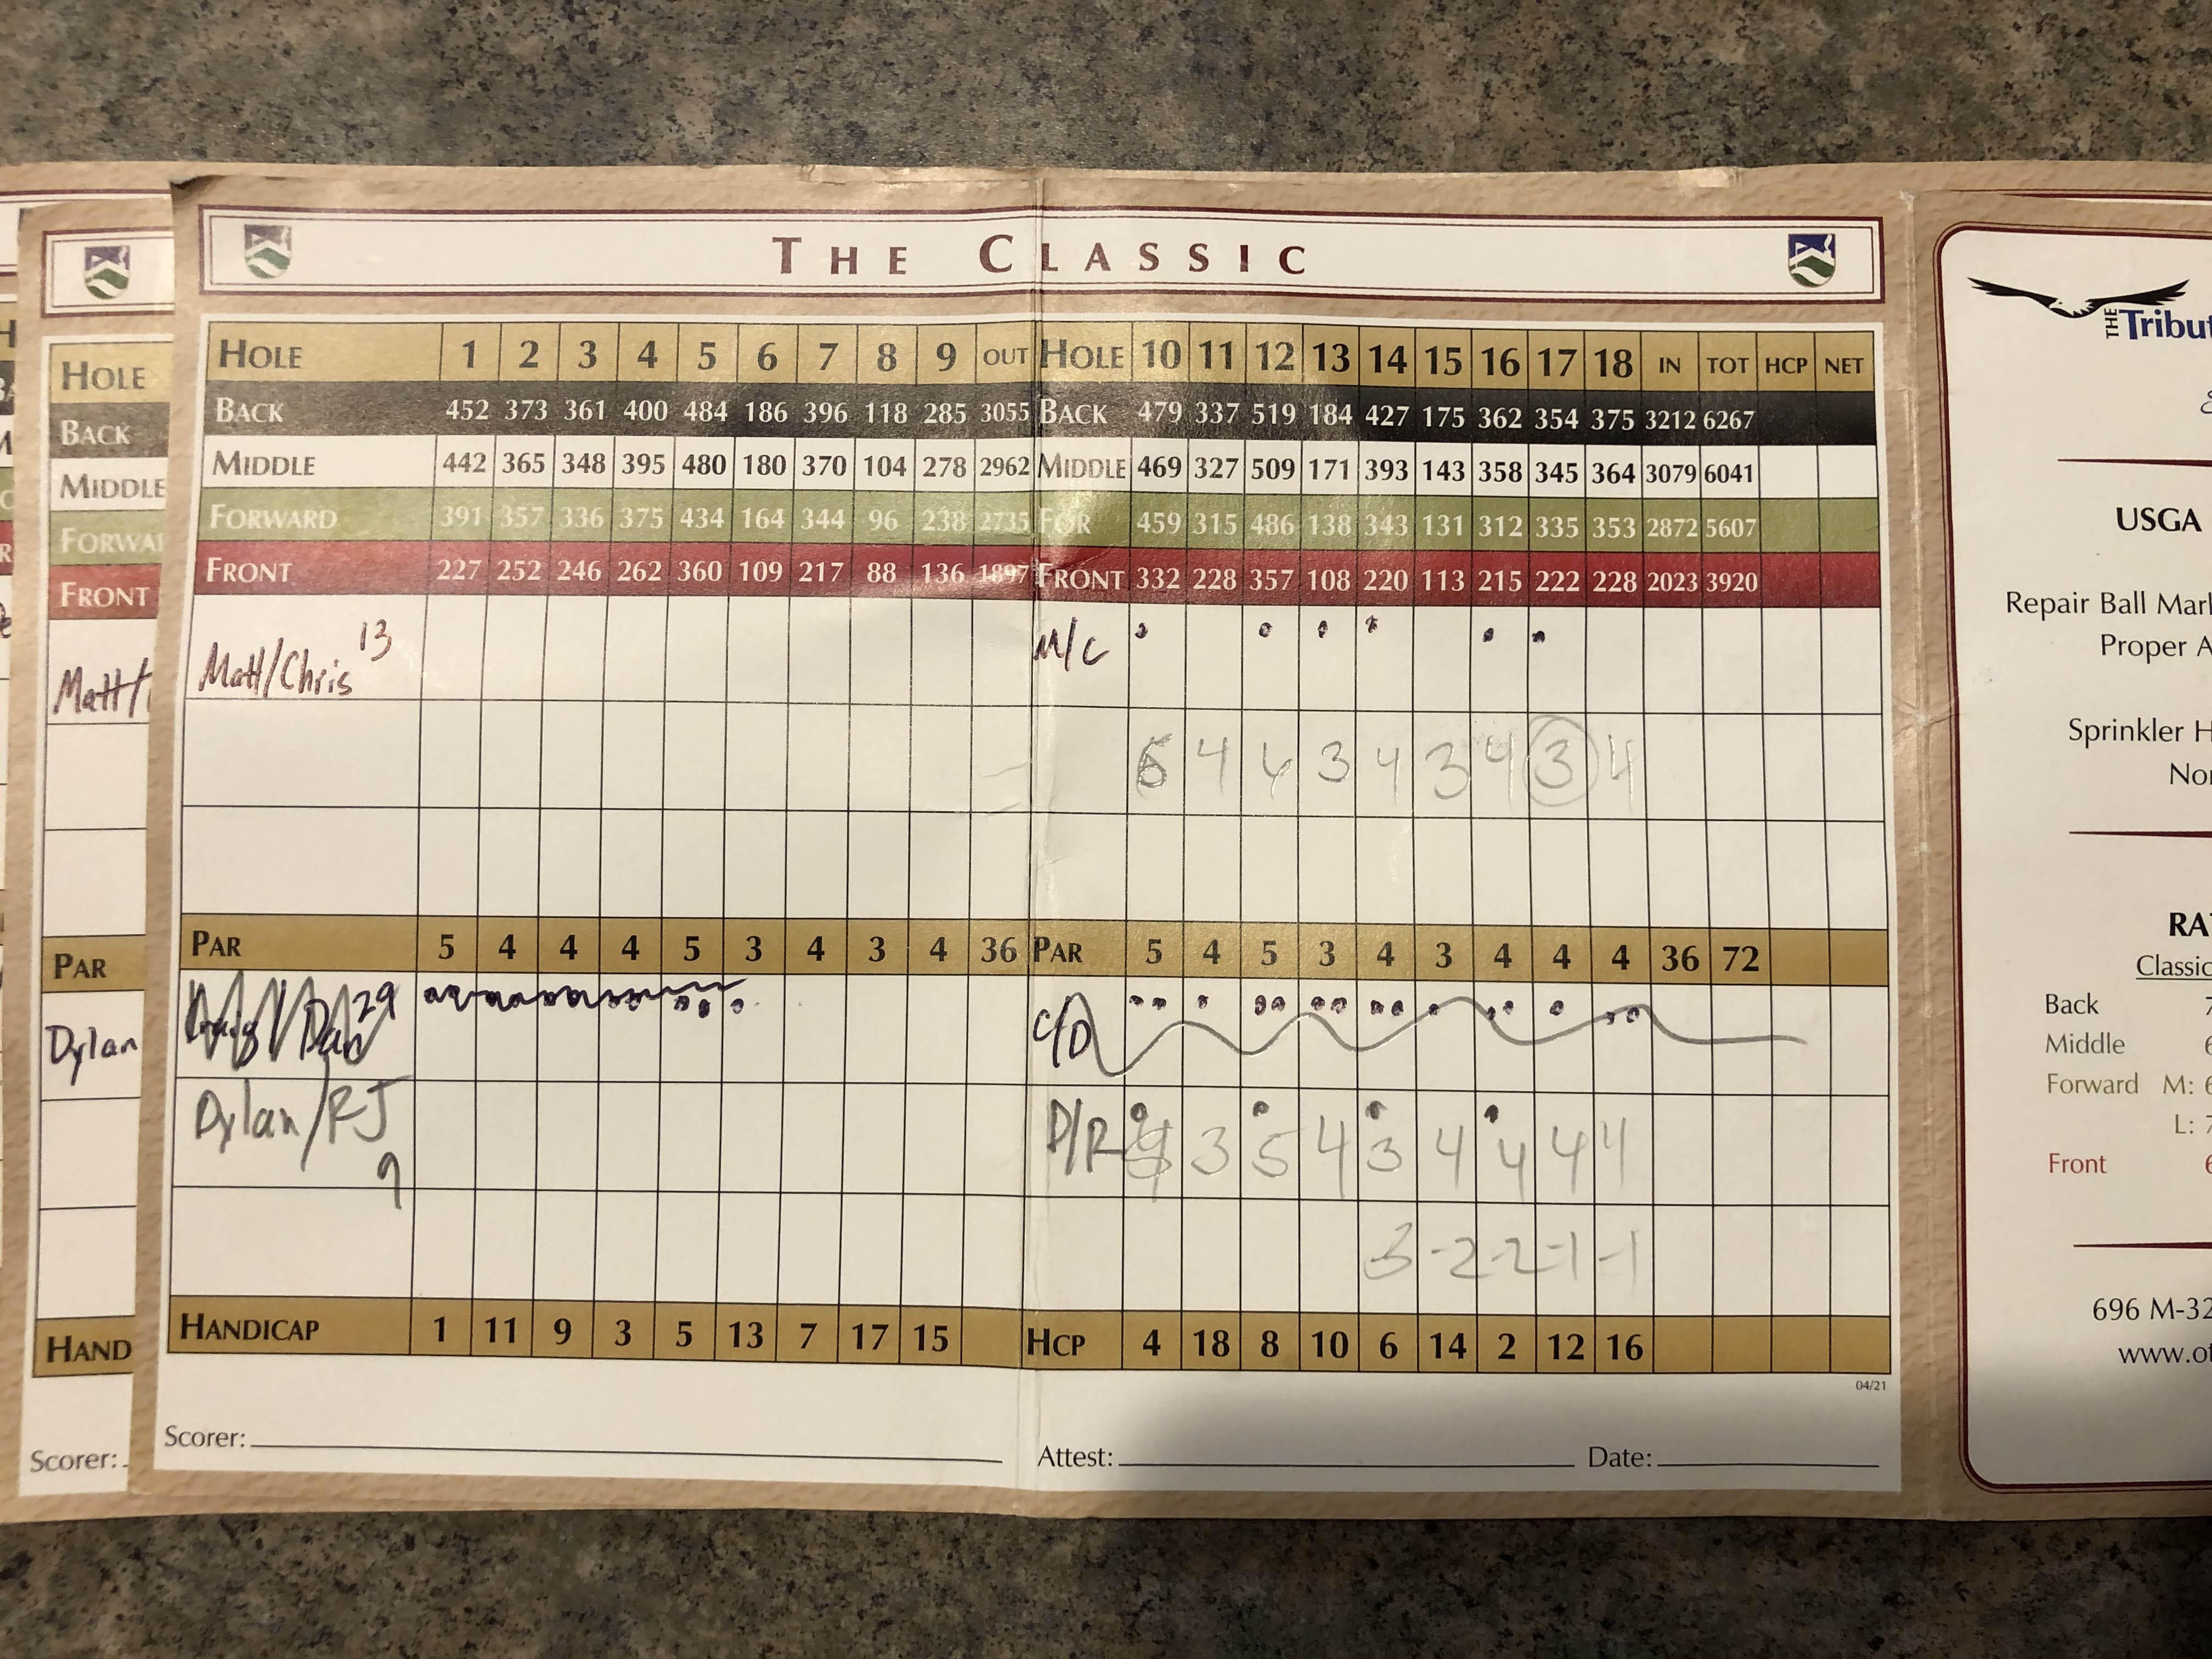 THE CLASSIC
HOLE 1 2 3 4 5 6 7 8 9 OUT HOLE 10 11 12 13 14 15 16 17 18 IN TOT HCP NET
BACK 452 373 361 400 484 186 396 118 285 3055 BACK 479 337 519 184 427 175 362 354 375 3212 6267
MIDDLE 442 365 348 395 480 180 370 104 278 2962 MIDDLE 469 327 509 171 393 143 358 345 364 3079 6041
FORWARD 391 357 336 375 434 164 344 96 238 2735 FOR 459 315 486 138 343 131 312 335 353 2872 5607
FRONT 227 252 246 262 360 109 217 88 136 1897 FRONT 332 228 357 108 220 113 215 222 228 2023 3920
Matt/Chris 13 M/C
4 6 3 4 3 4 3 4
PAR 5 4 4 4 5 3 4 3 4 36 PAR 5 4 5 3 4 3 4 4 4 36 72
29 C/D
Dylan/RJ 9 D/R 3 5 4 3 4 4 4 4
-2 -2 -1 -1
HANDICAP 1 11 9 3 5 13 7 17 15 HCP 4 18 8 10 6 14 2 12 16
04/21
Scorer: Attest: Date:
HOLE
BACK
MIDDLE
FORWA
FRONT
Matt/
PAR
Dylan
HAND
Scorer:
THE Tribut
USGA
Repair Ball Mar
Proper A
Sprinkler H
No
RA
Classic
Back 7
Middle 6
Forward M: 6
L: 7
Front 6
696 M-32
www.ot